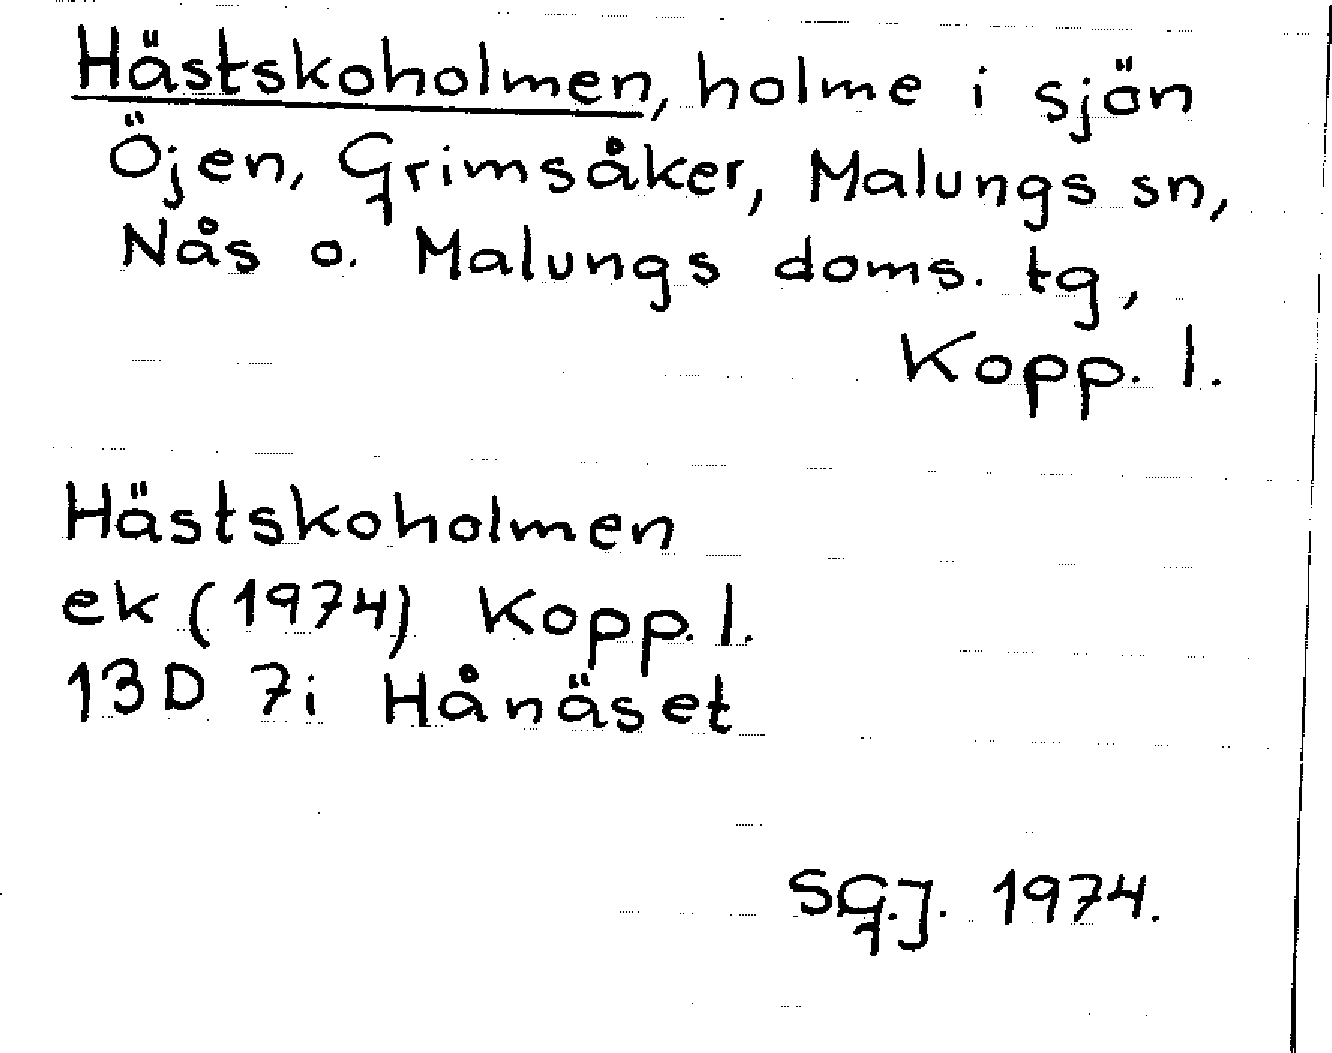 Hästskoholmen, holme i sjön
Öjen, Grimsåker, Malungs sn,
Nås o. Malungs doms. tg,
Kopp. l.
Hästskoholmen
ek (1974) Kopp. l.
13D 7i Hånäset
SG.J. 1974.